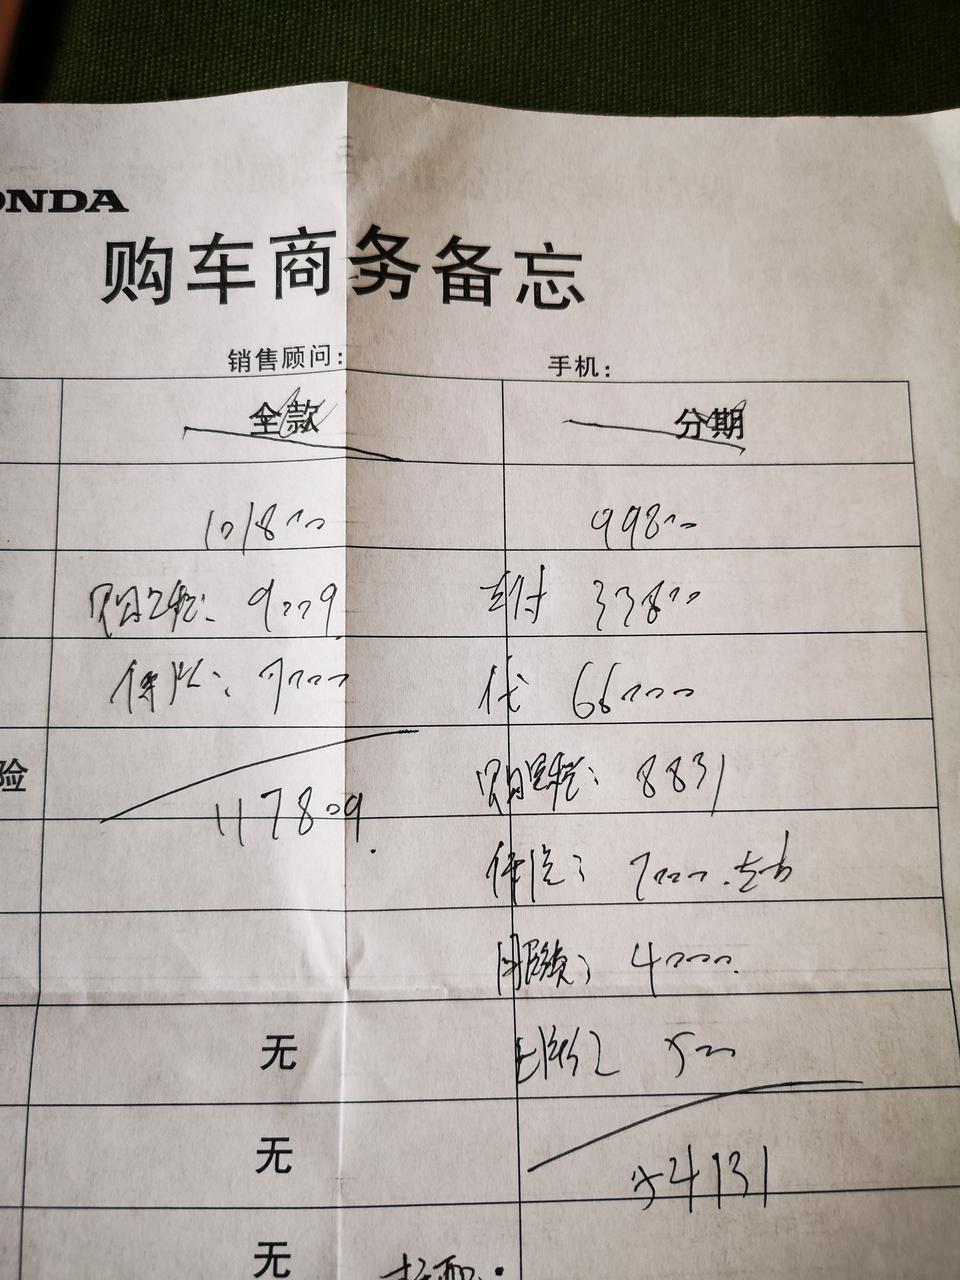 ONDA
购车商务备忘
销售顾问： 手机：
全款 分期
101800 99800
购置税： 9009 首付 33800
保险： 7000 贷 66000
险 购置税： 8831
117809.
保险： 7000.左右
4000.
500
54131
无
无
无